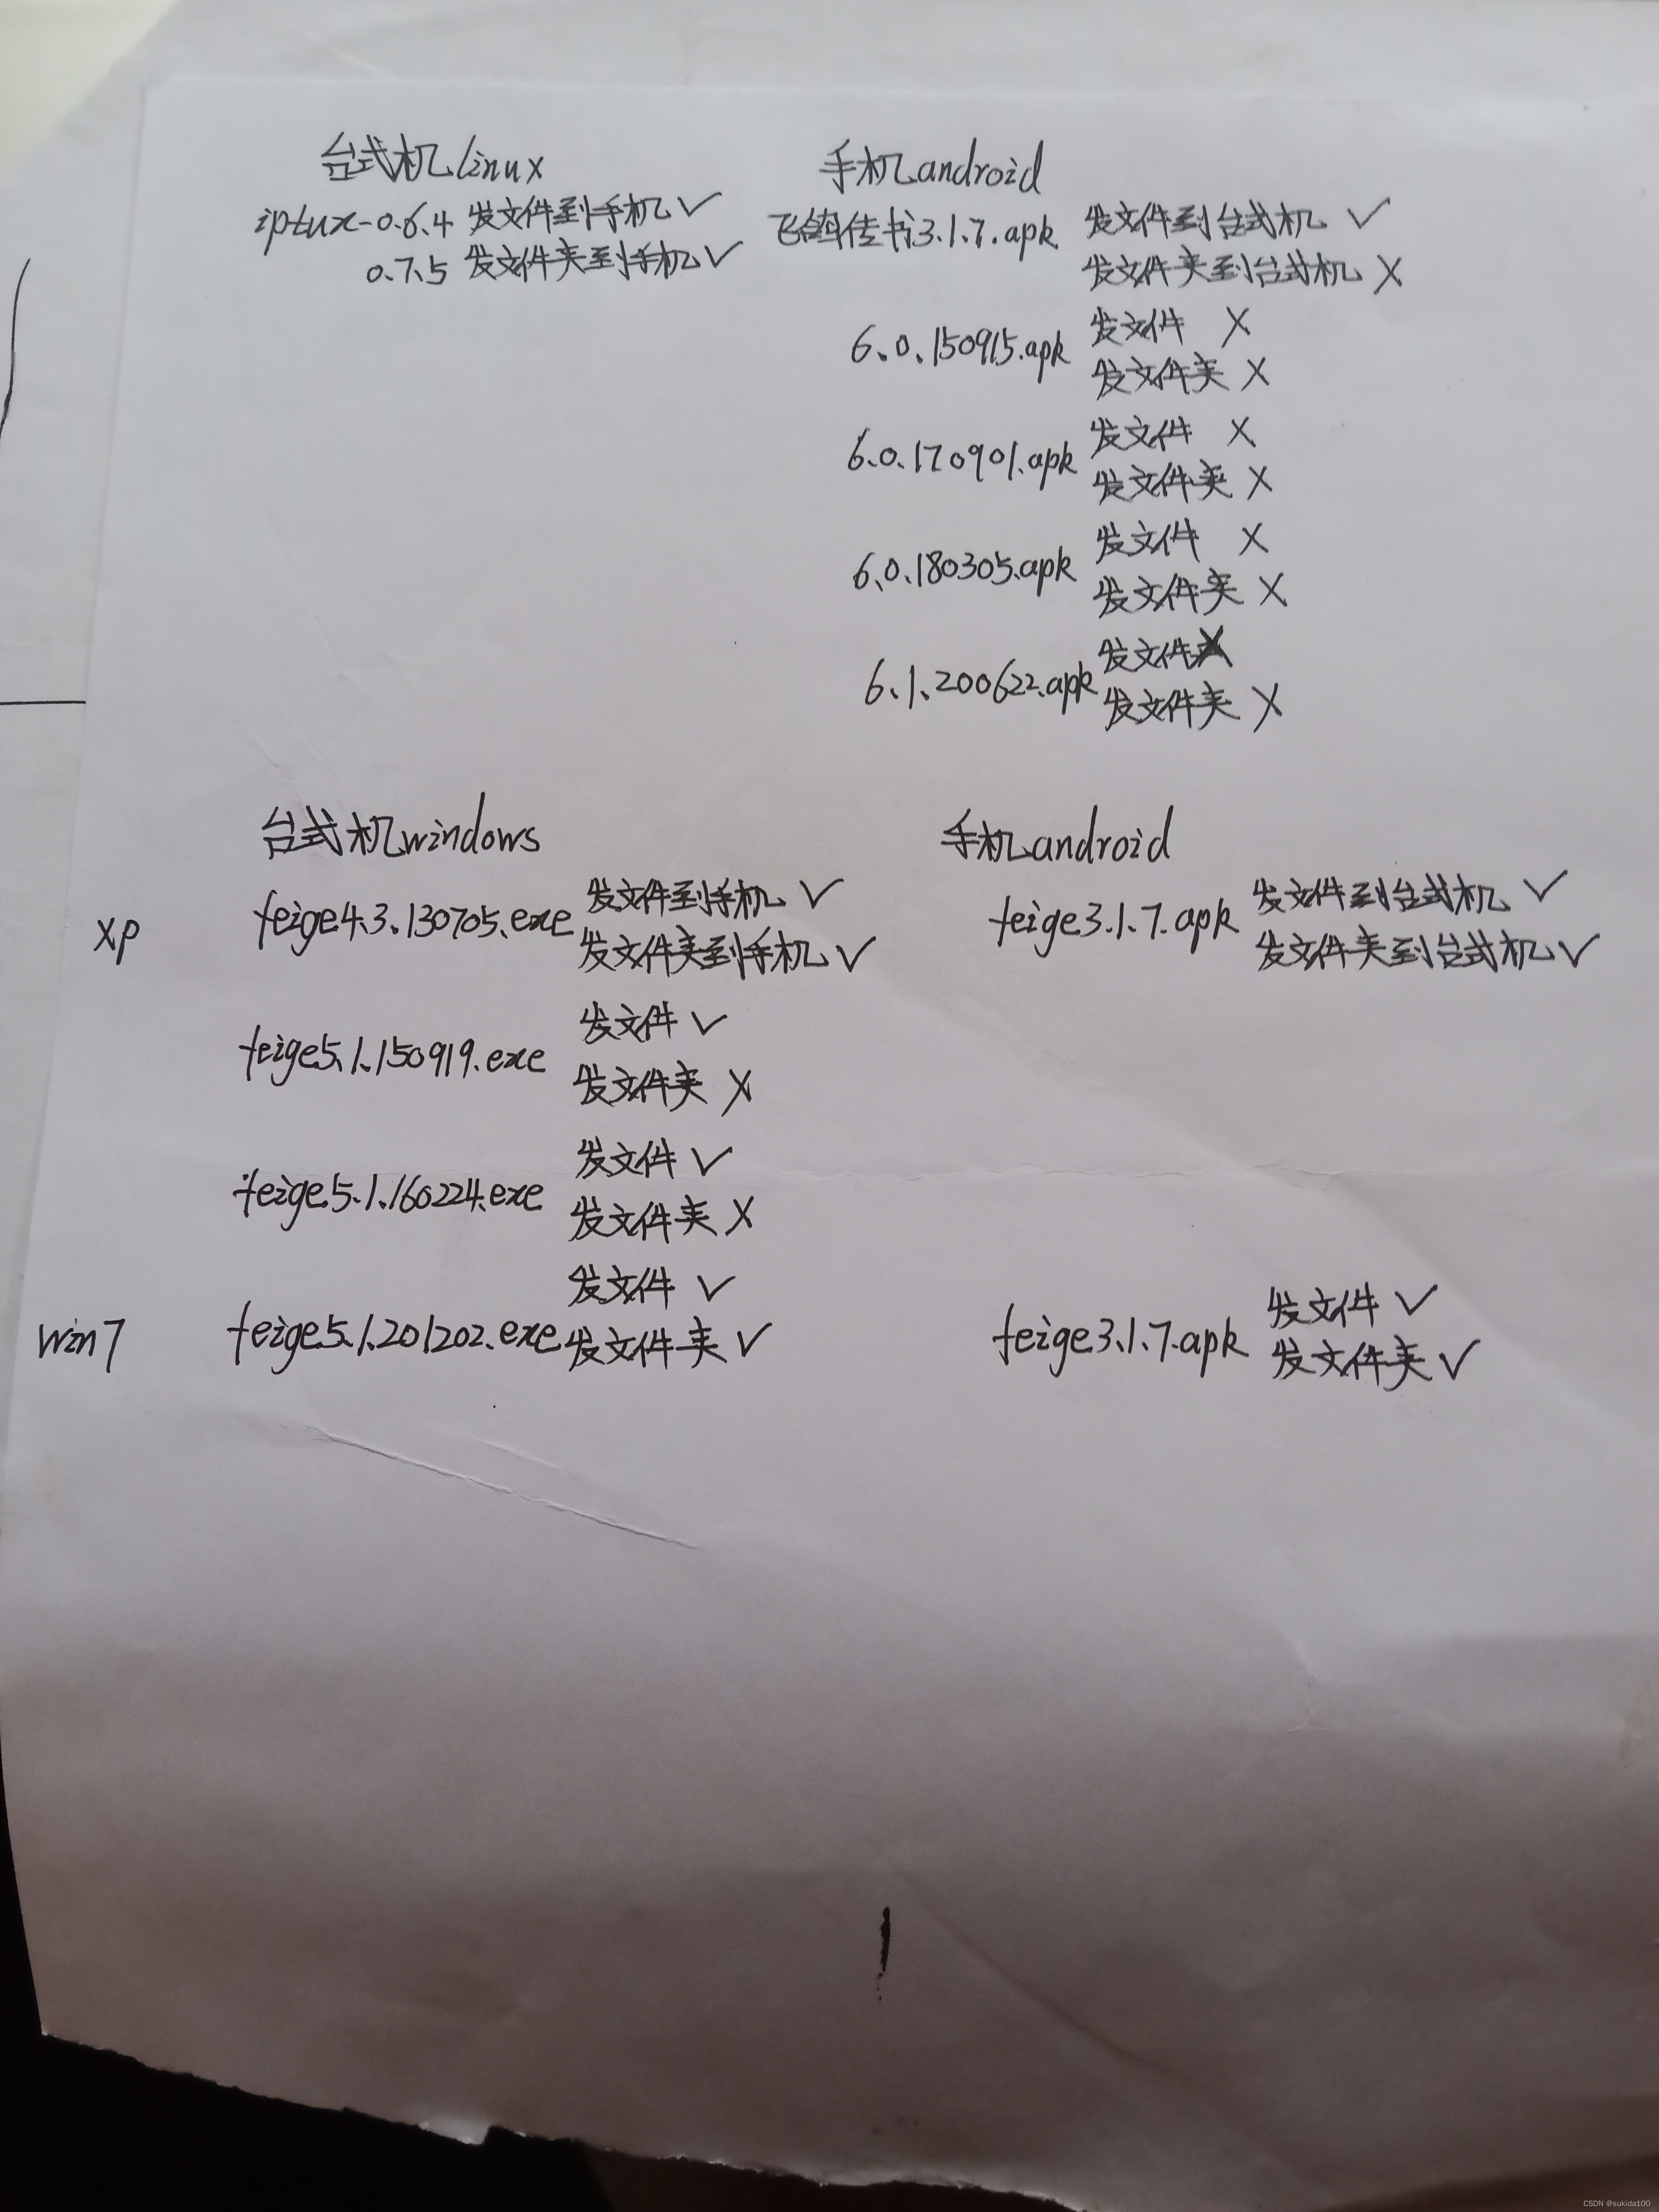 台式机linux
iptux-0.6.4 发文件到手机 ✓
0.7.5 发文件夹到手机 ✓
手机android
飞鸽传书3.1.7.apk 发文件到台式机 ✓
发文件夹到台式机 X
6.0.150915.apk 发文件 X
发文件夹 X
6.0.170901.apk 发文件 X
发文件夹 X
6.0.180305.apk 发文件 X
发文件夹 X
6.1.200622.apk 发文件 X
发文件夹 X
台式机windows
手机android
xp
feige4.3.130705.exe 发文件到手机 ✓
发文件夹到手机 ✓
feige3.1.7.apk 发文件到台式机 ✓
发文件夹到台式机 ✓
feige5.1.150919.exe 发文件 ✓
发文件夹 X
feige5.1.160224.exe 发文件 ✓
发文件夹 X
win7
feige5.1.201202.exe 发文件 ✓
发文件夹 ✓
feige3.1.7.apk 发文件 ✓
发文件夹 ✓
CSDN @sukida100